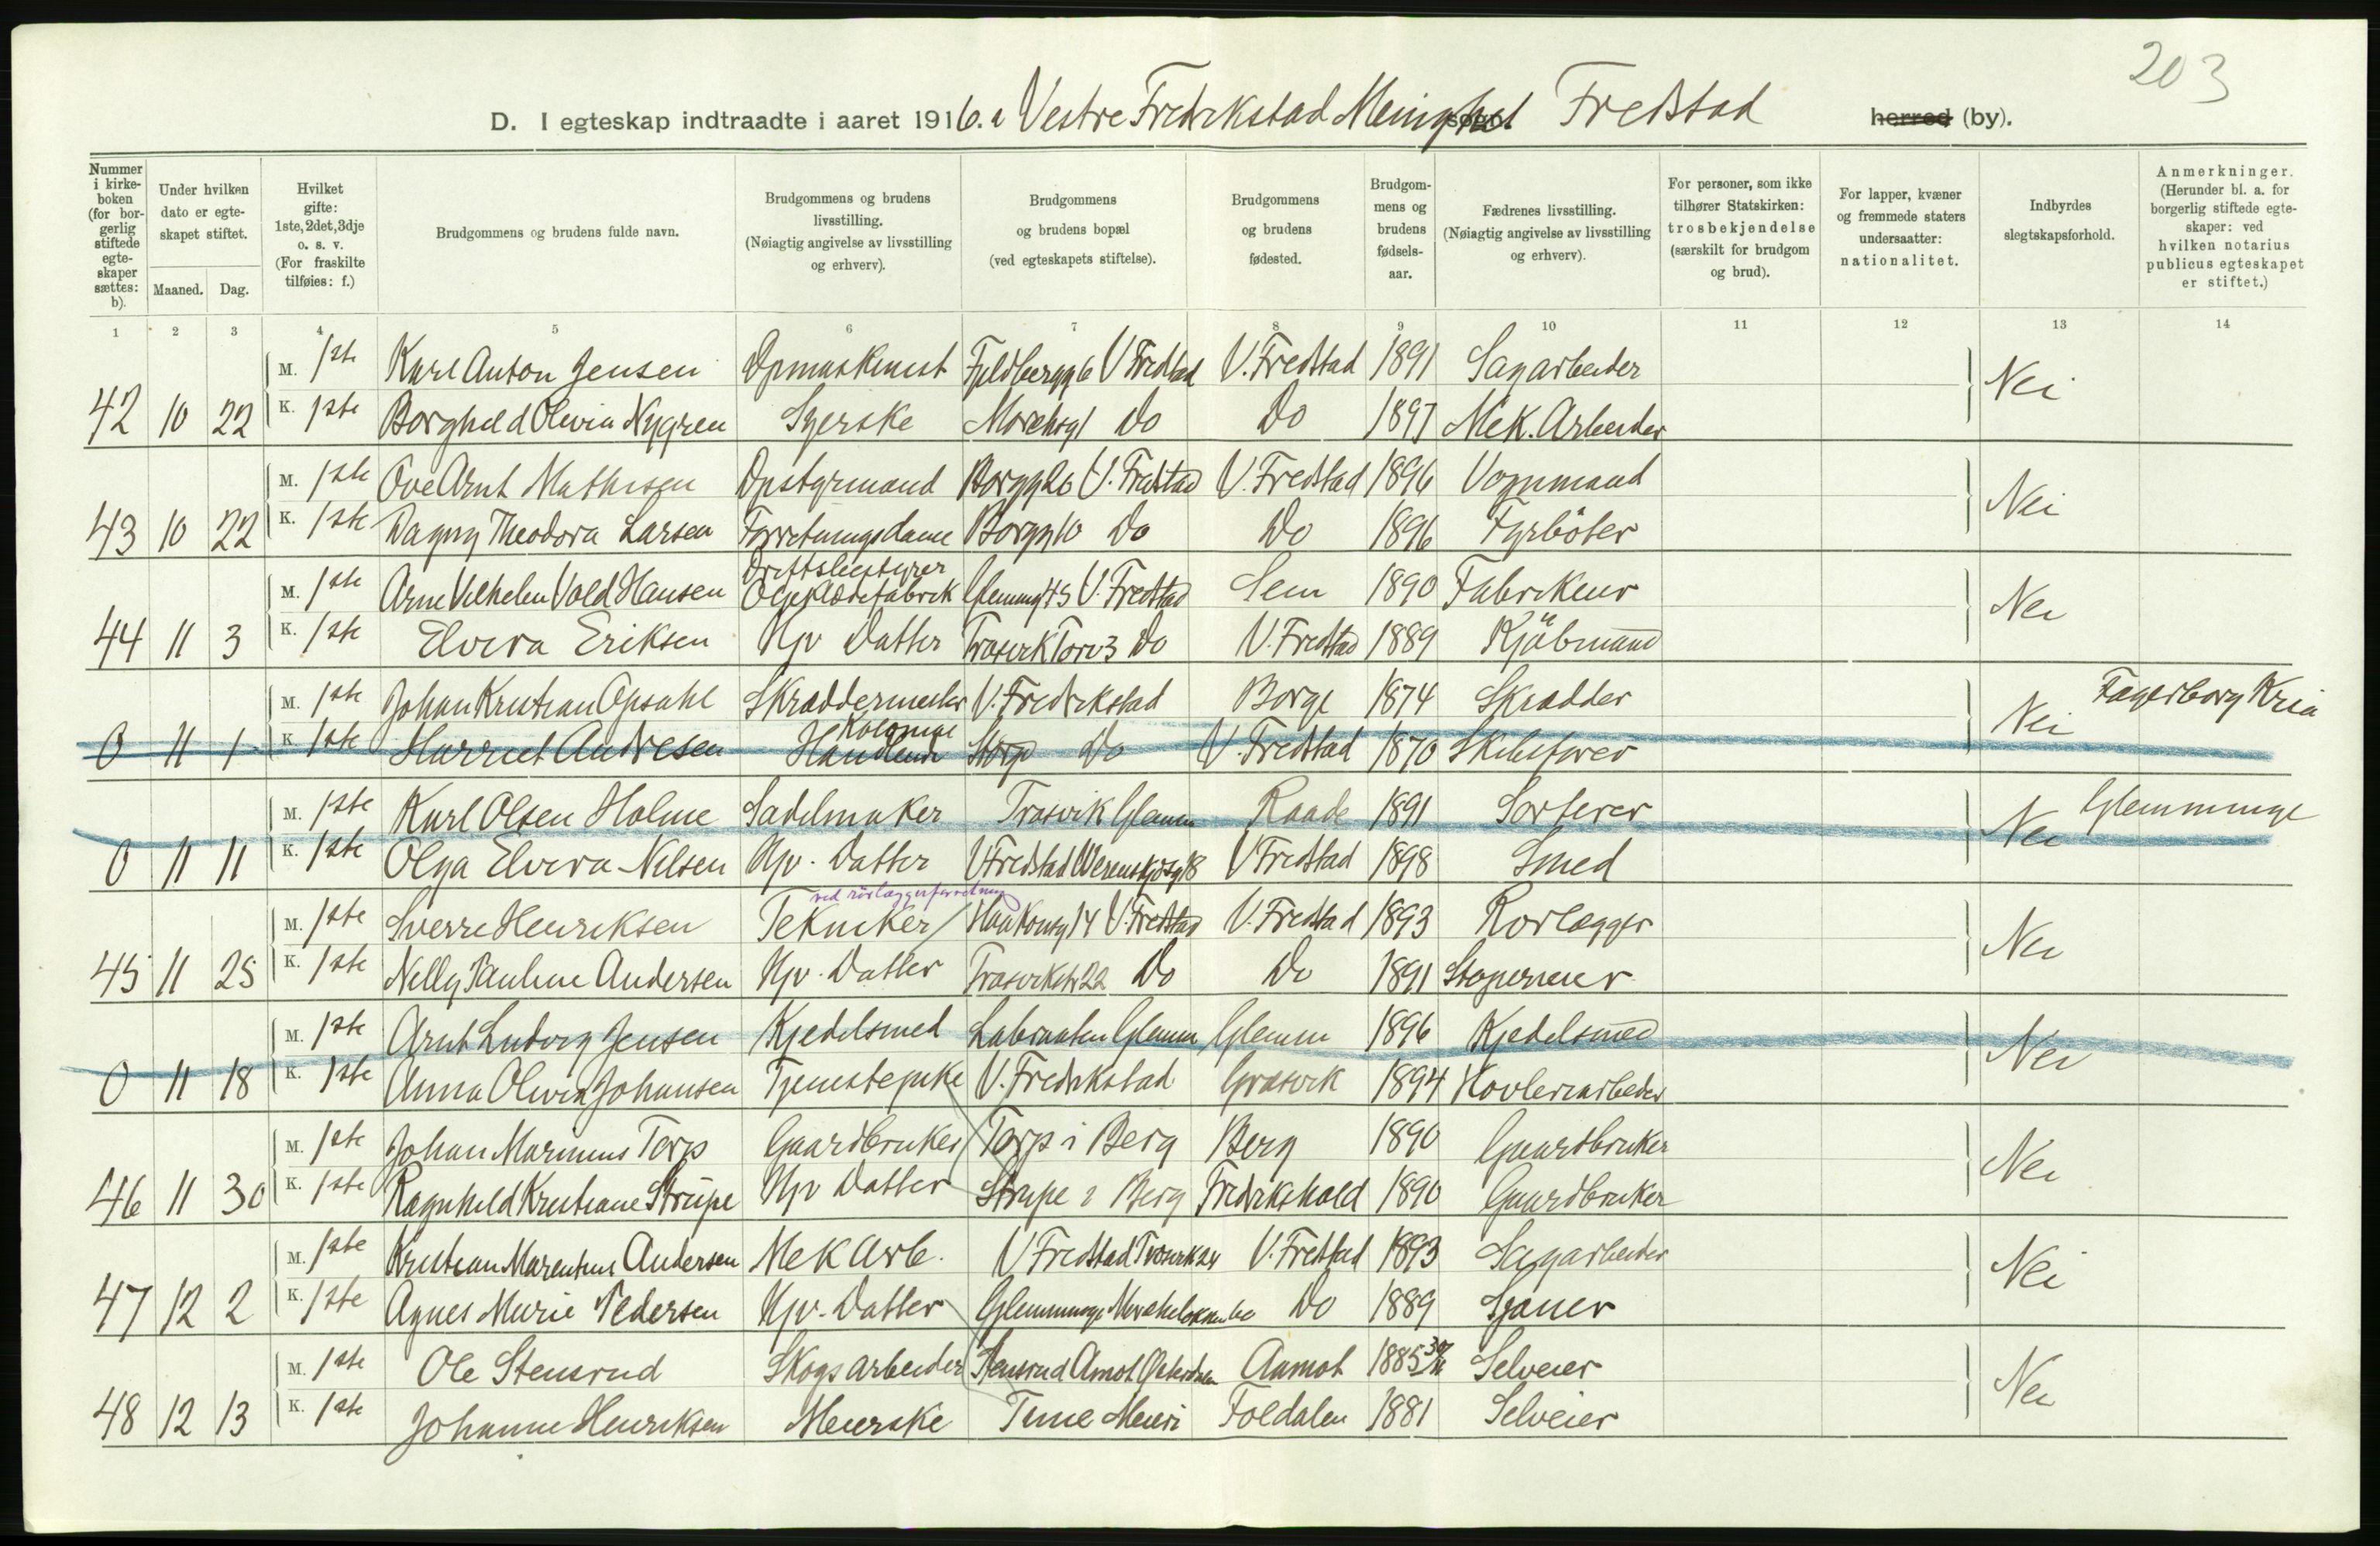 203
D. I egteskap indtraadte i aaret 1916. i Vestre Fredrikstad Menighet sogn. Fredstad herred (by).
Nummer i kirkeboken (for borgerlig stiftede egteskaper sættes: b).
Under hvilken dato er egteskapet stiftet.
Maaned. Dag.
Hvilket gifte: 1ste, 2det, 3dje o. s. v. (For fraskilte tilføies: f.)
Brudgommens og brudens fulde navn.
Brudgommens og brudens livsstilling. (Nøiagtig angivelse av livsstilling og erhverv).
Brudgommens og brudens bopæl (ved egteskapets stiftelse).
Brudgommens og brudens fødested.
Brudgommens og brudens fødselsaar.
Fædrenes livsstilling. (Nøiagtig angivelse av livsstilling og erhverv).
For personer, som ikke tilhører Statskirken: trosbekjendelse (særskilt for brudgom og brud).
For lapper, kvæner og fremmede staters undersaatter: nationalitet.
Indbyrdes slegtskapsforhold.
Anmerkninger. (Herunder bl. a. for borgerlig stiftede egteskaper: ved hvilken notarius publicus egteskapet er stiftet.)
1 2 3 4 5 6 7 8 9 10 11 12 13 14
M. 1ste Karl Anton Jensen Opmaskinist Fjeldbergg 6 V Fredstad V. Fredstad 1891 Sagarbeider
42 10 22 K. 1ste Borghild Olivia Nygren Syerske Do Do 1897 Mek. Arbeider Nei
M. 1ste Ove Arnt Mathisen Opstyrmand Borgg 26 V. Fredstad V. Fredstad 1896 Vognmand
43 10 22 K. 1ste Dagny Theodora Larsen Forretningsdame Borgg 10 Do Do 1896 Fyrböter Nei
M. 1ste Arne Vilhelm Vold Hansen Driftsbestyrer Oljeklædefabrik Glemmg 45 V. Fredstad Sem 1890 Fabrikeur
44 11 3 K. 1ste Elvira Eriksen Hjv Datter Trosvik Torv 3 Do V. Fredstad 1889 Kjöbmand Nei
M. 1ste Johan Kristian Opsahl Skræddermester V. Fredrikstad Borge 1874 Skrædder Fagerborg Kria
0 11 1 K. 1ste Harriet Andresen Kolonial Handlende Storg Do V. Fredstad 1870 Skibsfører Nei
M. 1ste Karl Olsen Holme Sadelmaker Trosvik Glemm Raade 1891 Sorterer Glemminge
0 11 11 K. 1ste Olga Elvira Nilsen Hjv. Datter V Fredstad Werenskjoldg 18 V Fredstad 1898 Smed Nei
M. 1ste Sverre Henriksen Tekniker / ved rörlæggerforretning Haakonsg 14 V. Fredstad V. Fredstad 1893 Rorlægger
45 11 25 K. 1ste Nelly Pauline Andersen Hjv. Datter Trosvikstr 22 Do Do 1891 Stoperieier Nei
M. 1ste Arnt Ludvig Jensen Kjedelsmed Labraaten Glemm Glemm 1896 Kjedelsmed
0 11 18 K. 1ste Anna Olivia Johansen Tjenestepike V. Fredrikstad Græsvik 1894 Hövleriarbeider Nei
M. 1ste Johan Marinius Torp Gaardbruker Torp i Berg Berg 1890 Gaardbruker
46 11 30 K. 1ste Ragnhild Kristiane Strupe Hjv Datter Strupe i Berg Fredrikshald 1890 Gaardbruker Nei
M. 1ste Kristian Marentius Andersen Mek Arb. V Fredstad Trosvik 24 V. Fredstad 1893 Sagarbeider
47 12 2 K. 1ste Agnes Marie Pedersen Hjv. Datter Glemminge Do 1889 Sjauer Nei
M. 1ste Ole Stensrud Skogsarbeider Stensrud Amot Østerdalen Aamot 1885 30/11 Selveier
48 12 13 K. 1ste Johanne Henriksen Meierske Tune Meieri Foldalen 1881 Selveier Nei